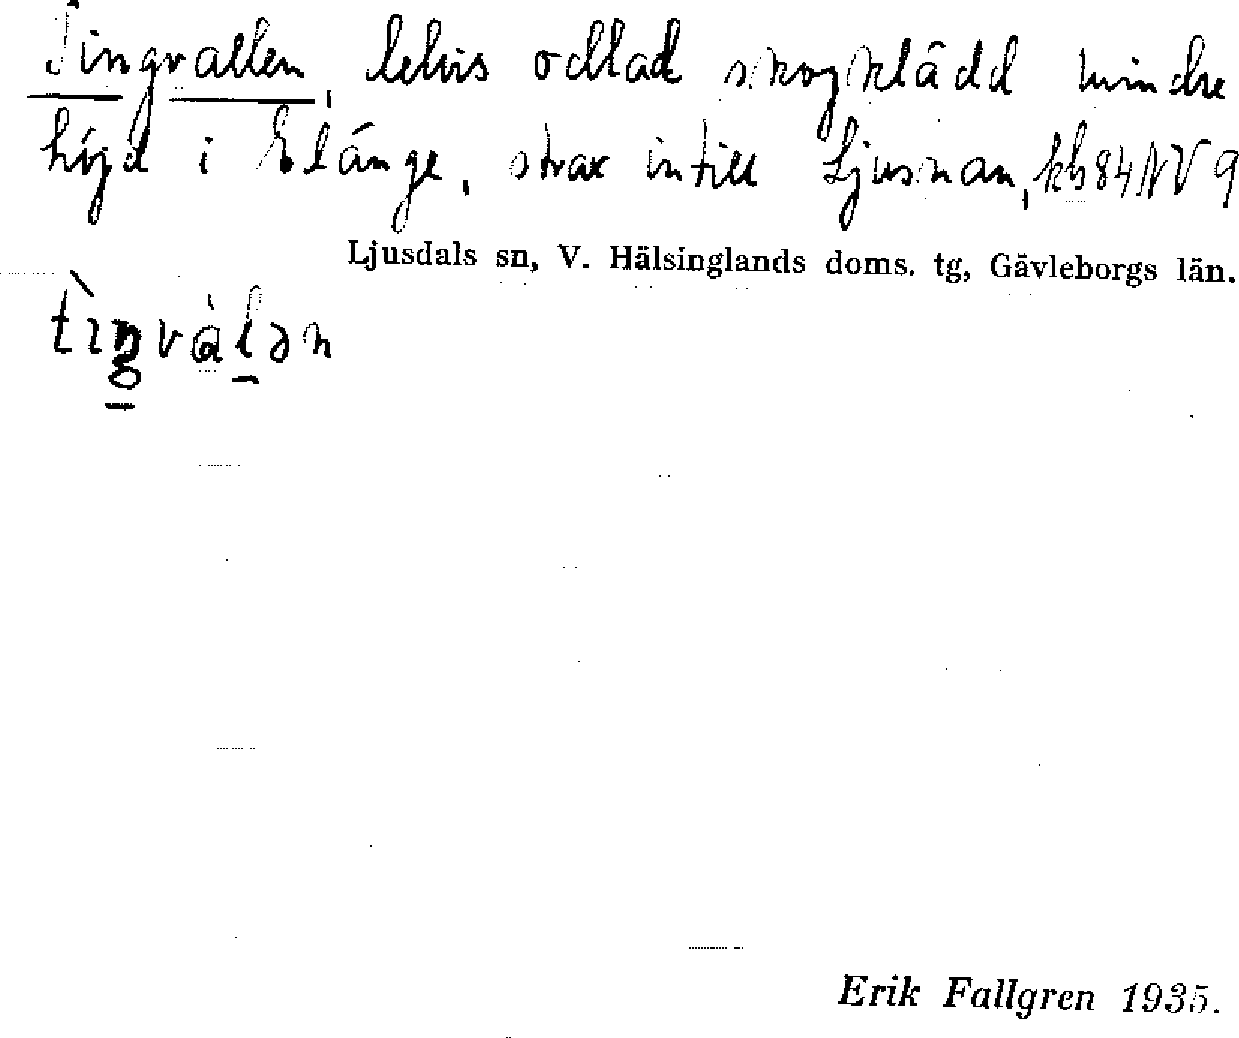 Tingvallen, delvis odlad skogklädd mindre
höjd i Elänge, strax intill Ljusnan, kb 84 NV 9
Ljusdals sn, V. Hälsinglands doms. tg, Gävleborgs län.
tìŋvàlən
Erik Fallgren 1935.